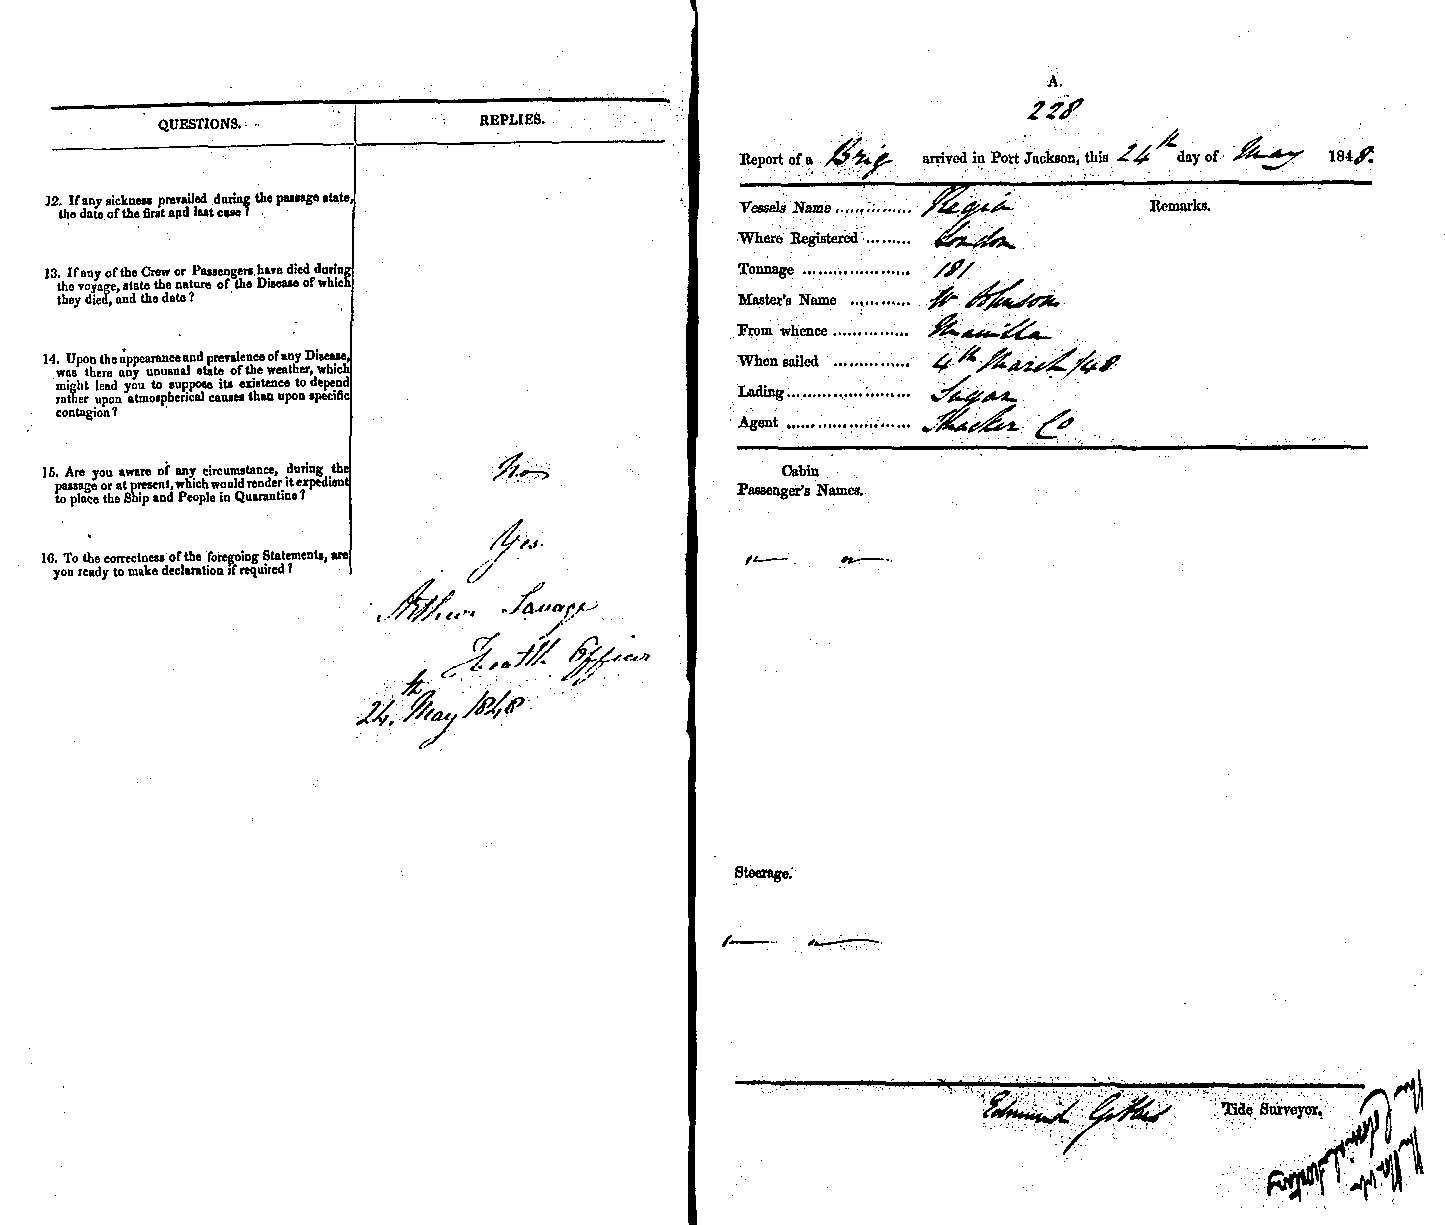 QUESTIONS.
REPLIES.
12. If any sickness prevailed during the passage state,
the date of the first and last case?
13. If any of the Crew or Passengers have died during
the voyage, state the nature of the Disease of which
they died, and the date?
14. Upon the appearance and prevalence of any Disease,
was there any unusual state of the weather, which
might lead you to suppose its existence to depend
rather upon atmospherical causes than upon specific
contagion?
15. Are you aware of any circumstance, during the
passage or at present, which would render it expedient
to place the Ship and People in Quarantine?
No
16. To the correctness of the foregoing Statements, are
you ready to make declaration if required?
Yes
Arthur Savage
Health Officer
24th May 1848
A.
228
Report of a Brig arrived in Port Jackson, this 24th day of May 1848.
Vessels Name .............. Regia
Remarks.
Where Registered ......... London
Tonnage ..................... 181
Master's Name ............ W Johnson
From whence ............... Manilla
When sailed ............... 4th March /48
Lading........................ Sugar
Agent ........................ Thacker Co
Cabin
Passenger's Names.
Steerage.
Edmund
Tide Surveyor.